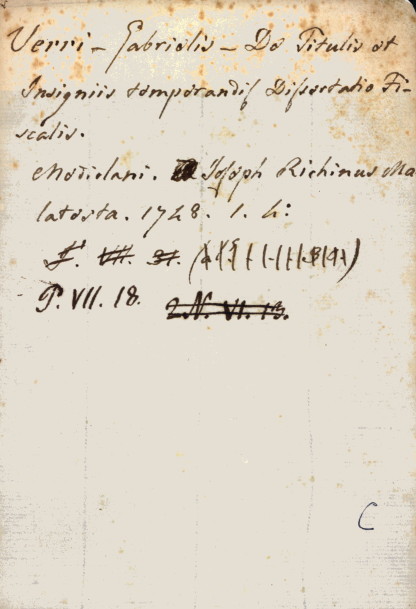 Verri - Gabrielis - De Titulis et
Insigniis temperandis Dissertatio Fi-
scalis.
Mediolani. Joseph Richinus Ma
latesta. 1748. 1. 4:
P. VII. 18. 2 N. VI. 13.
C